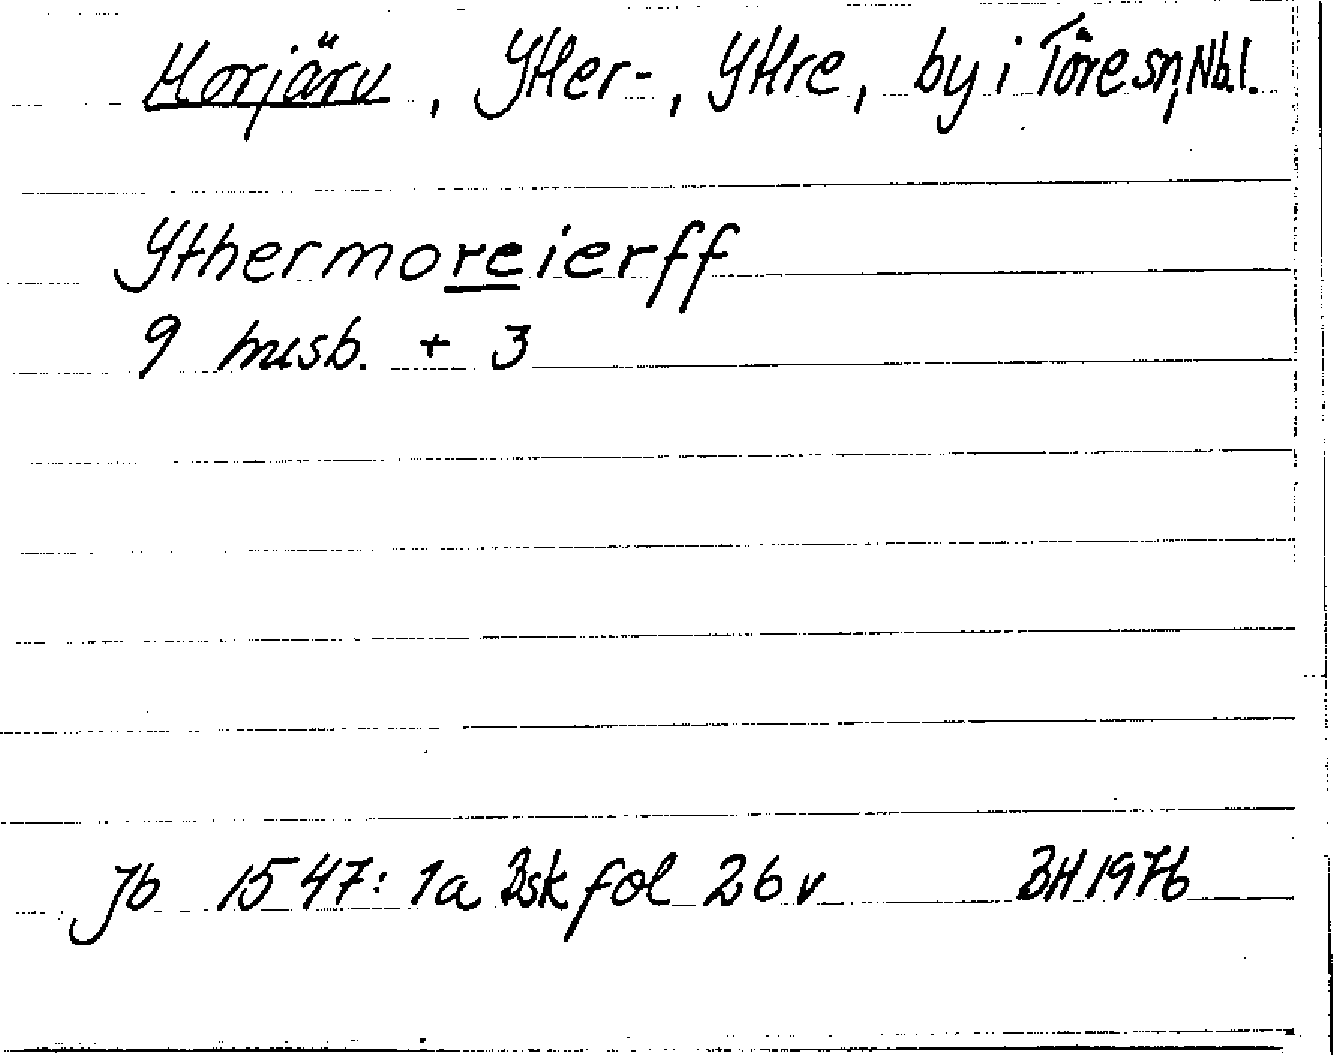 Morjärv, Ytter-, Yttre, by i Töre sn, Nb.l.
Ythermoreierff
9 mtsb. + 3
Jb 1547: 1a Bsk fol 26 v BH 1976